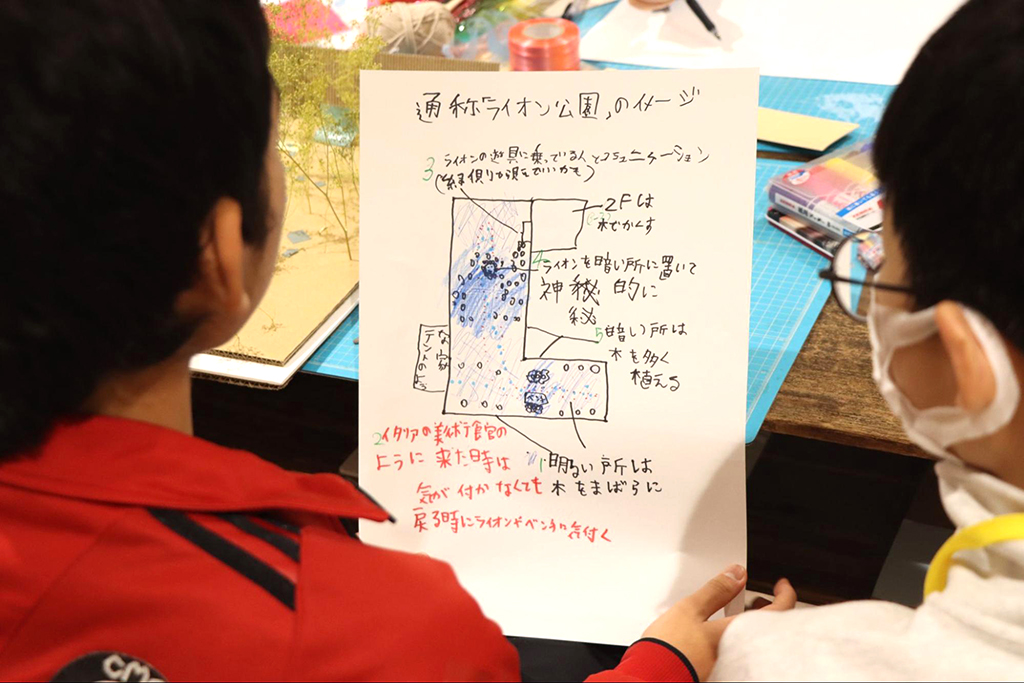 通称「ライオン公園」のイメージ
3 ライオンの遊具に乗っている人とコミュニケーション
(縁側から見てもいいかも)
2Fは
木でかくす
4 ライオンを暗い所に置いて
神秘的に
秘
5 暗い所は
木を多く
植える
テントのような家
ベンチ
2 イタリアの美術館の
ように来た時は
気が付かなくても
戻る時にライオンやベンチに気付く
1 明るい所は
木をまばらに